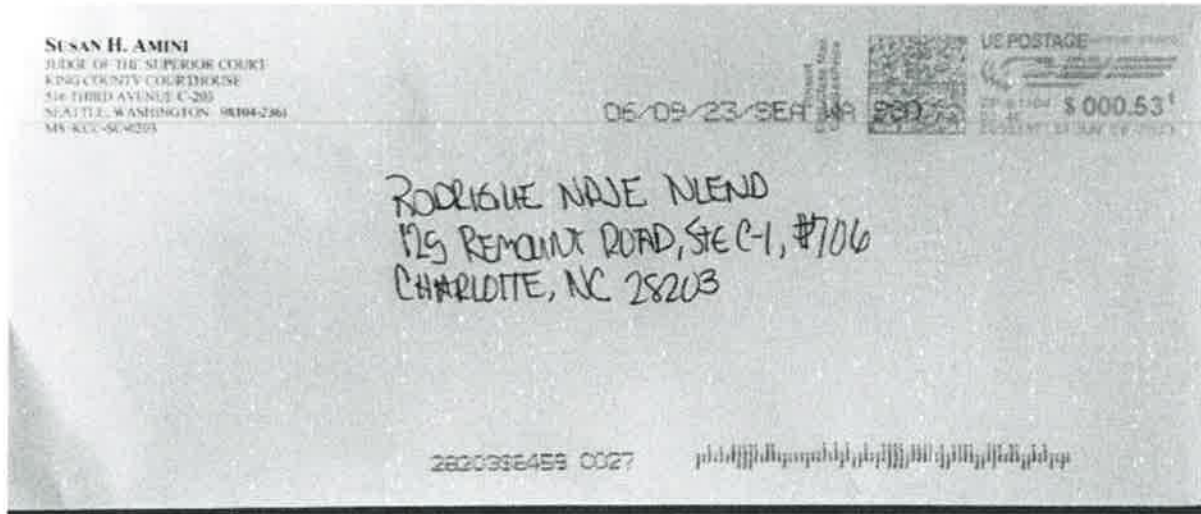 SUSAN H. AMINI
JUDGE OF THE SUPERIOR COURT
KING COUNTY COURTHOUSE
516 THIRD AVENUE C-203
SEATTLE, WASHINGTON 98104-2361
MS KCC-SC-0203
06/09/23/SEA WA
US POSTAGE
$ 000.53¹
RODRIGUE NDJE NLEND
125 REMOUNT ROAD, STE C-1, #706
CHARLOTTE, NC 28203
0027